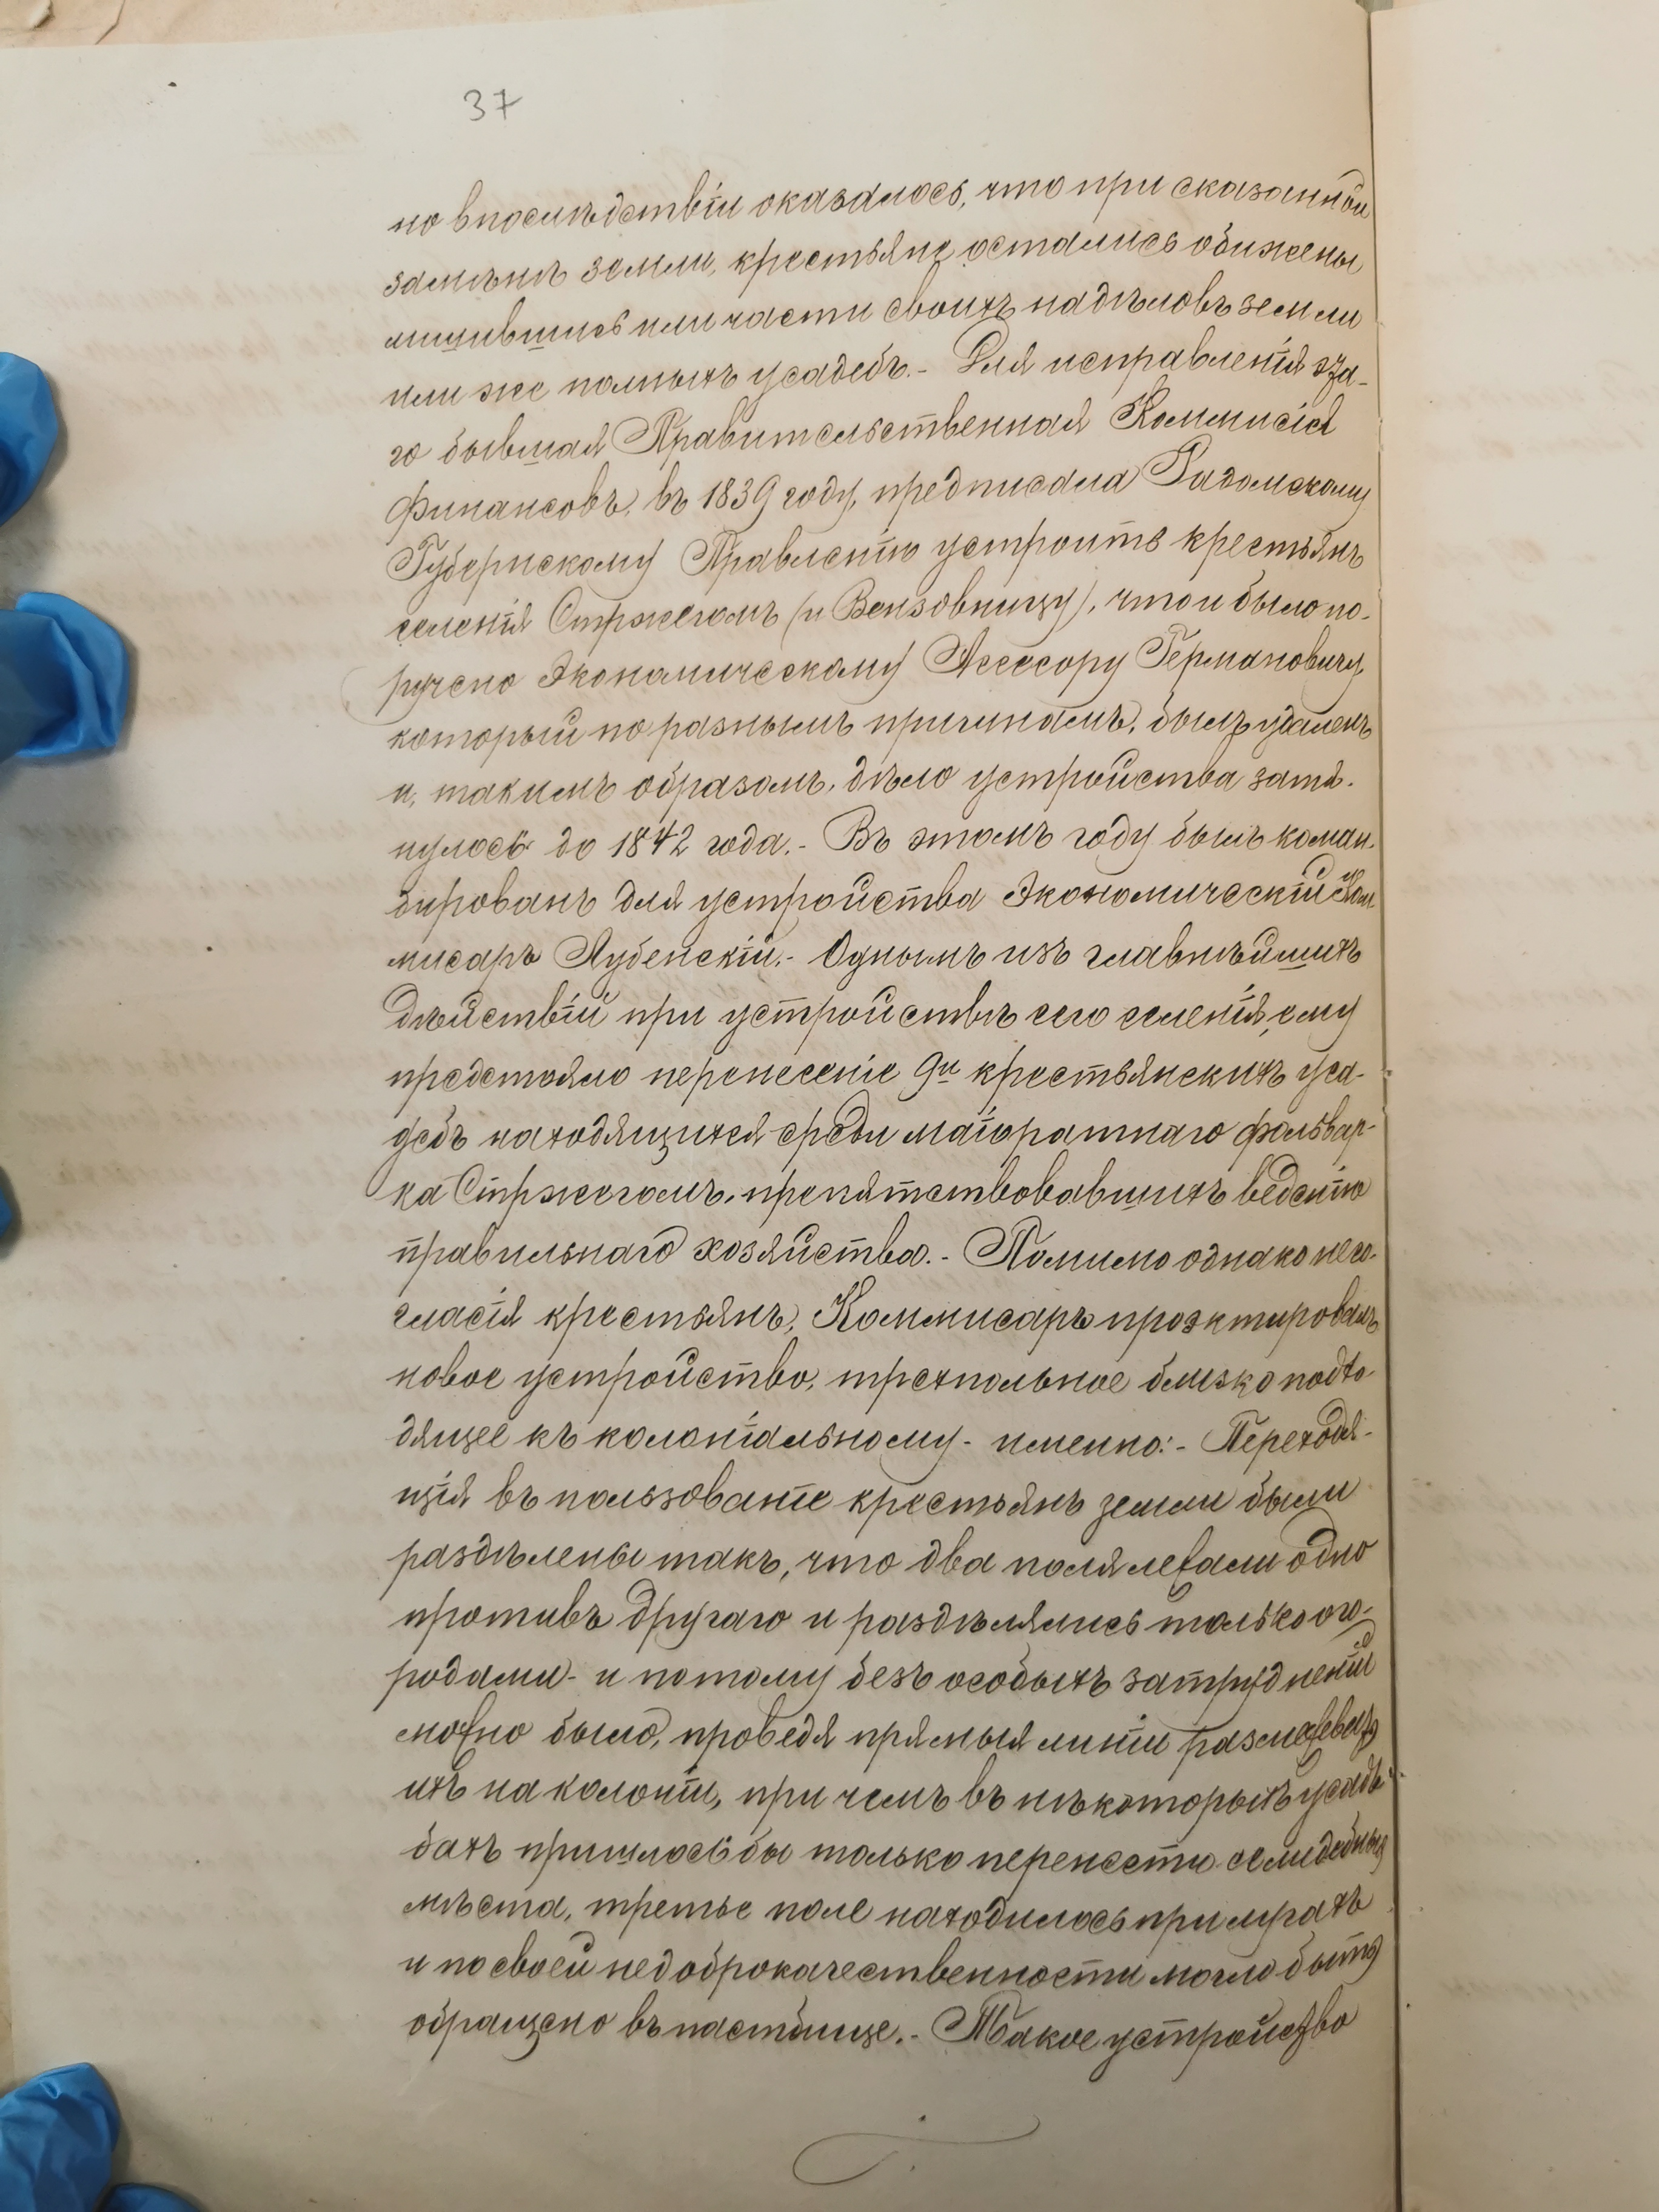 37
но впослѣдствіи оказалось, что при сказанной
замѣнѣ земли, крестьяне остались обижены
лишившись или части своихъ надѣловъ земли
или же полныхъ усадебъ.- Для исправленія эта-
го бывшая Правительственная Коммисія
Финансовъ, въ 1839 году, предписала Радомскому
Губернскому Правленію устроить крестьянъ
селенія Стржегомъ (и Вензовницу), что и было по-
ручено Экономическому Асессору Германовичу,
который по разнымъ причинамъ, былъ удаленъ
и, такимъ образомъ, дѣло устройства затя-
нулось до 1842 года.- Въ этомъ году былъ коман-
дированъ для устройства Экономическій Ком
мисаръ Лубенскій.- Однымъ изъ главнѣйшихъ
дѣйствій при устройствѣ сего селенія, ему
предстояло перенесеніе 9и крестьянскихъ уса-
дебъ находящихся среди маіоратнаго фольвар-
ка Стржегомъ, препятствовавшихъ веденію
правильнаго хозяйства.- Помимо однако несо-
гласія крестьянъ, Коммисаръ проэктировалъ
новое устройство, трехпольное близко подхо
дящее къ колоніальному- именно:- Переходя-
щія въ пользованіе крестьянъ земли были
раздѣлены такъ, что два поля лежали одно
противъ другаго и раздѣлялись только ого-
родами- и потому безъ особыхъ затрудненій
можно было, проведя прямыя линіи размежевать
ихъ на колоніи, при чемъ въ нѣкоторыхъ усадь-
бахъ пришлось бы только перенести селидебныя
мѣста, третье поле находилось при лугахъ
и по своей недоброкачественности могло быть
обращено въ пастбище.- Такое устройство